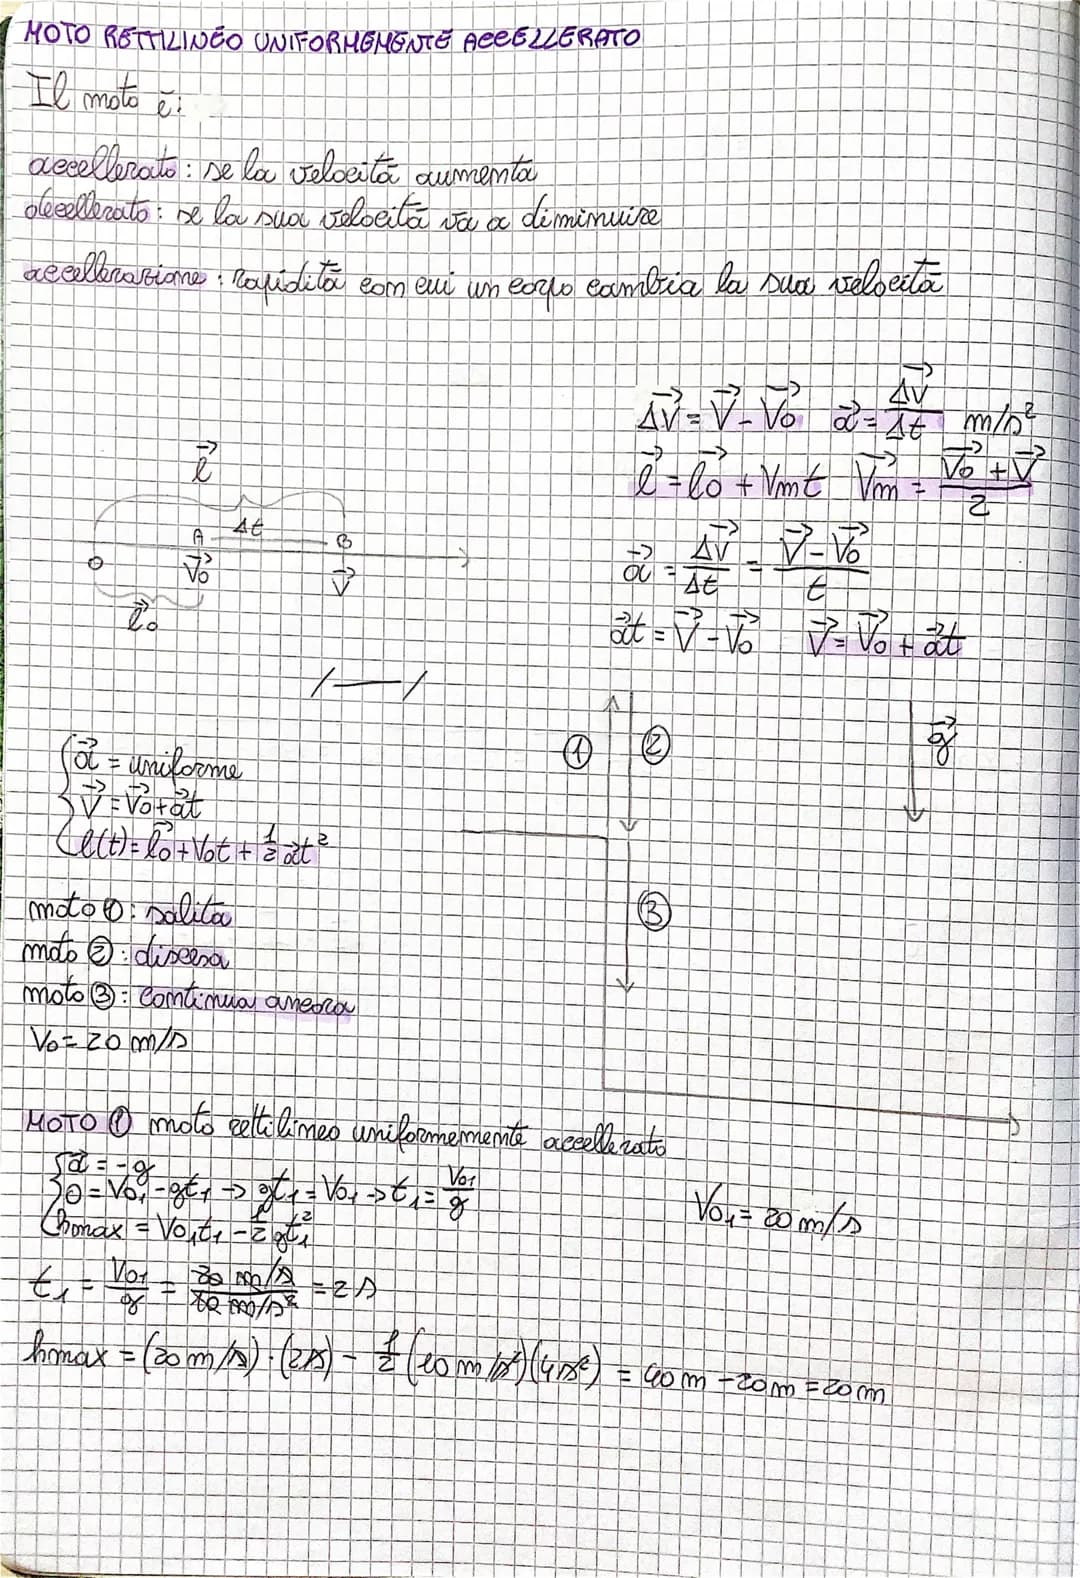 MOTO RETTILINEO UNIFORMEMENTE ACCELLERATO
Il moto è:
accellerato: se la velocità aumenta
decellerato: se la sua velocità va a diminuire
accellerazione: rapidità con cui un corpo cambia la sua velocità
Δv⃗ = v⃗ - v⃗₀ a⃗ = Δv⃗/Δt m/s²
l⃗ = l⃗₀ + Vmt V⃗m = (v⃗₀ + v⃗)/2
l⃗
A Δt B
O v⃗₀ v⃗
l⃗₀
a⃗ = Δv⃗/Δt = (v⃗ - v⃗₀)/t
a⃗t = v⃗ - v⃗₀ v⃗ = v⃗₀ + a⃗t
① ② g⃗
a⃗ = uniforme
v⃗ = v⃗₀ + a⃗t
l(t) = l⃗₀ + V₀t + 1/2 a⃗t²
③
moto ①: salita
moto ②: discesa
moto ③: continua ancora
V₀ = 20 m/s
MOTO ① moto rettilineo uniformemente accellerato
a⃗ = -g
0 = V₀₁ - gt₁ → gt₁ = V₀₁ → t₁ = V₀₁/g
hmax = V₀₁t₁ - 1/2 gt₁²
V₀₁ = 20 m/s
t₁ = V₀₁/g = 20 m/s / 10 m/s² = 2 s
hmax = (20 m/s) · (2s) - 1/2 (10 m/s²)(4s²) = 40 m - 20 m = 20 m